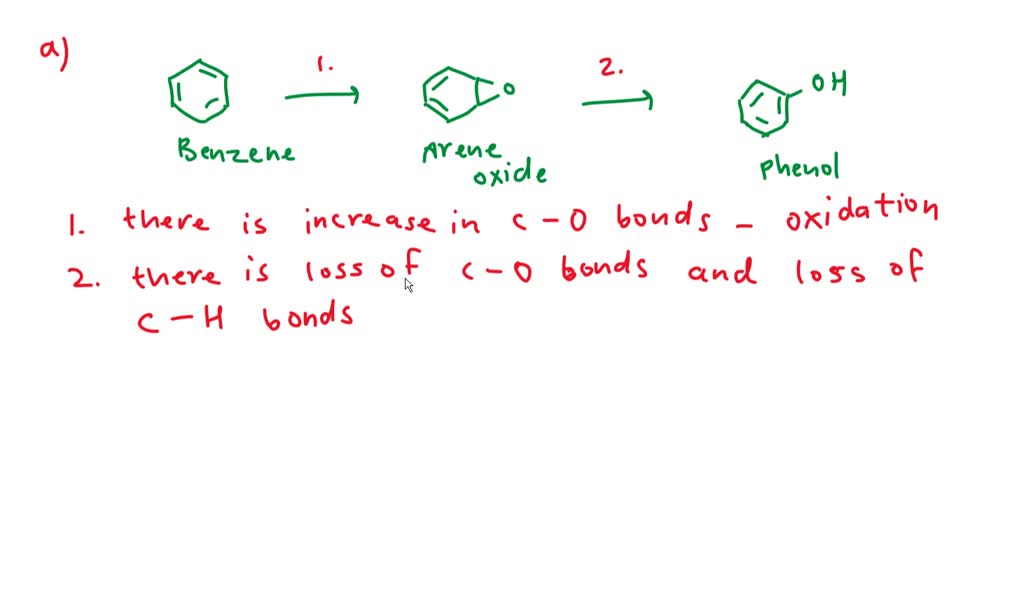 a)
1.
2.
O
OH
Benzene
Arene
oxide
phenol
1. there is increase in C-O bonds - oxidation
2. there is loss of C-O bonds and loss of
C-H bonds